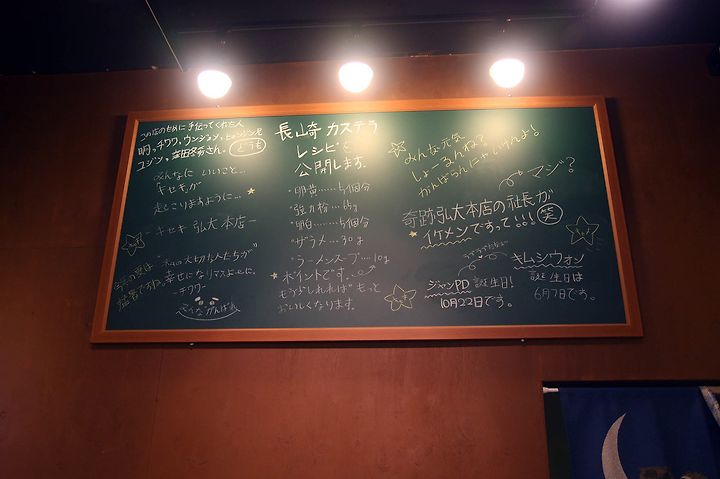 この店のために手伝ってくれた人
明、チワワ、ウンジョン、ヒョンジン兄
ユジン、窪田冬芬さん。どうも
みんなに いいこと…
キセキが
起こりますように…
ーキセキ 弘大 本店ー
"ネムの大切な人たちが"
幸せになりマスよせに。
ーチワワー
みんながんばれ
長崎 カステラ
レシピを
公開します。
・卵黄……5個分
・強力粉……65g
・卵白……5個分
・ザラメ…30g
・ラーメンスープ…10g
ポイントです。
もっと
おいしくなります。
みんな元気
しょーるんね?
がんばらんにゃいけんよ!
マジ?
奇跡弘大本店の社長が
イケメンですって!!!笑
ジャンPD 誕生日!
10月22日です。
キムシウォン
誕生日は
6月7日です。